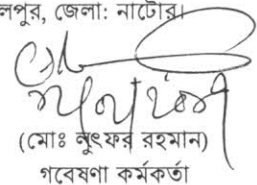 লপুর, জেলা: নাটোর।
(মোঃ লুৎফর রহমান)
গবেষণা কর্মকর্তা